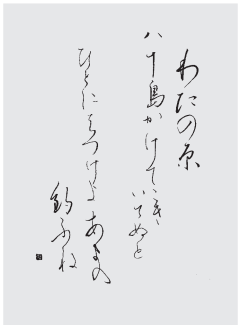 わたの原
八十島かけてこき
いてぬと
ひとにはつけよあまの
釣ふね